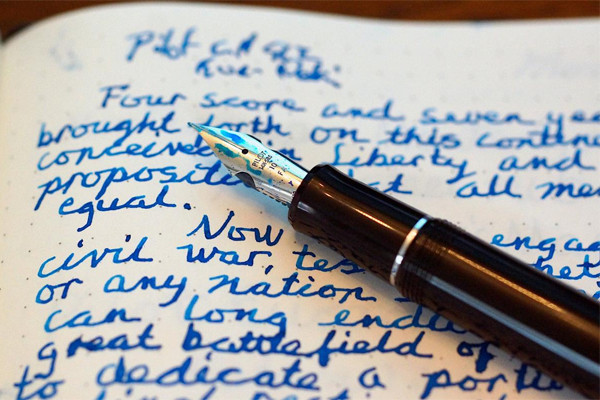 Pilot
Kon-Peki
Four score and seven yea
brought forth on this contine
conceive in Liberty and
proposi at all me
equal.
Now engag
civil war, tes het
or any nation
can long endu
great battlefield of
to dedicate a porti